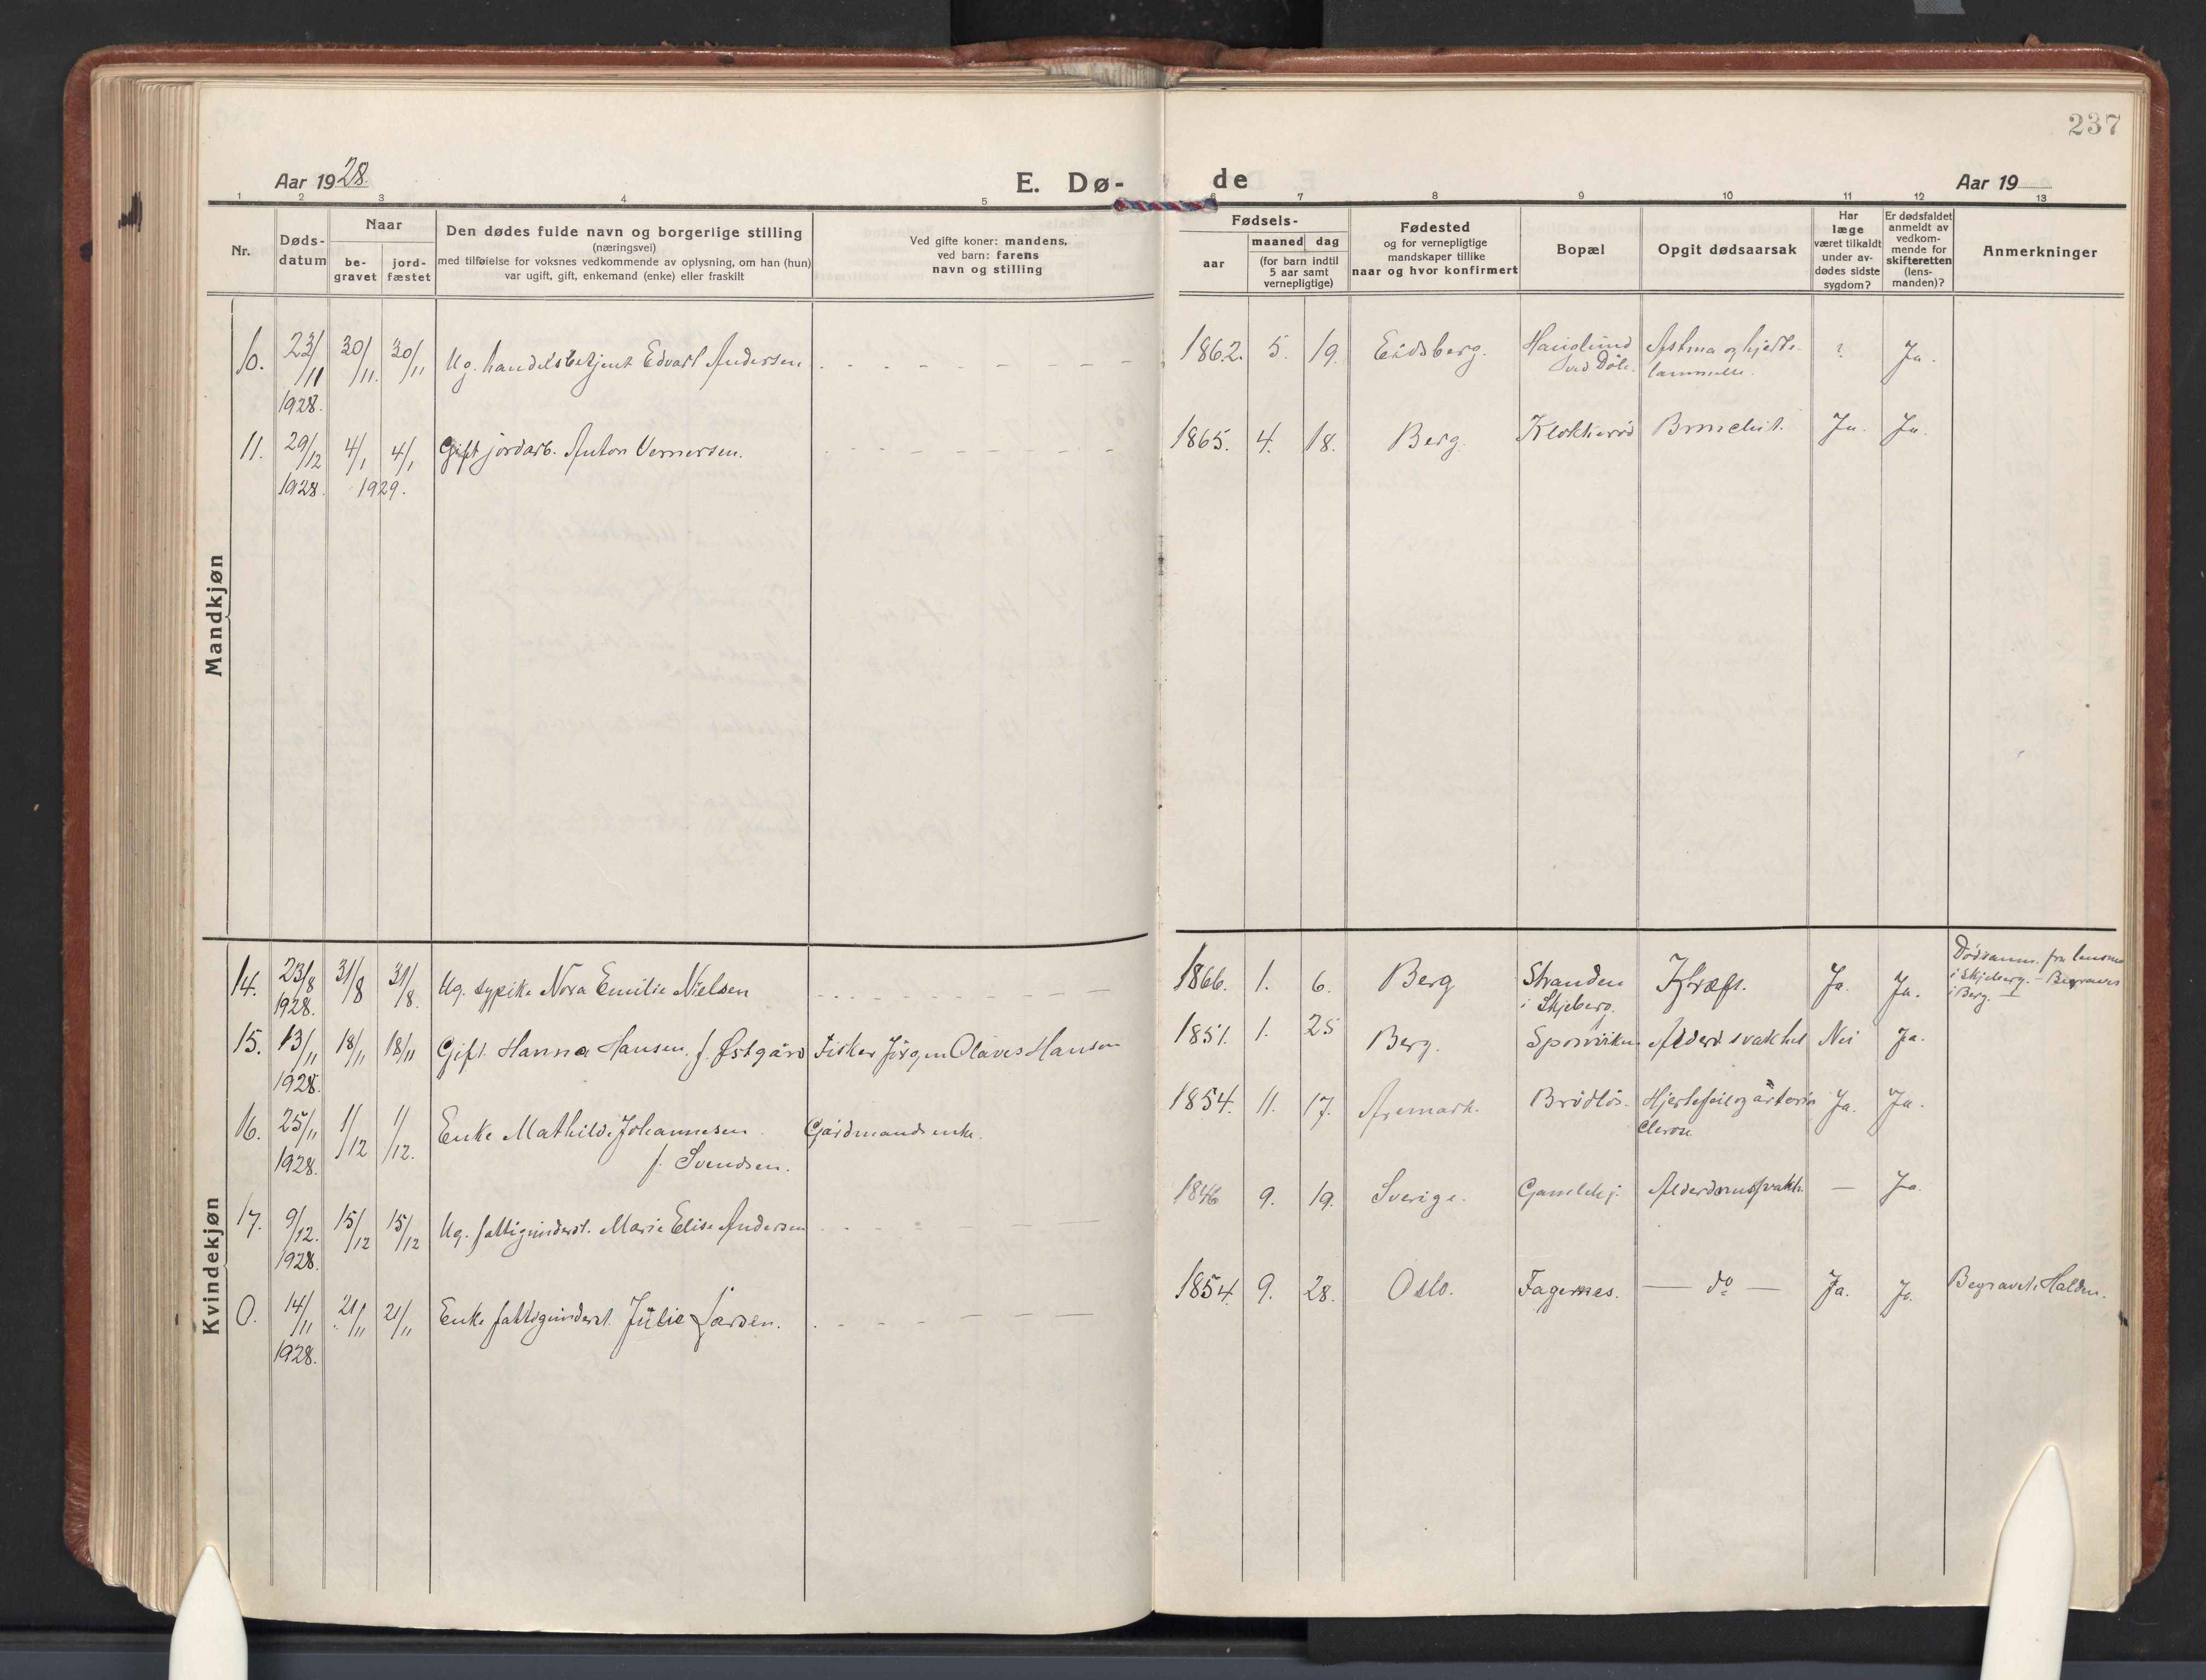 237
Aar 1928.
E. Dø-
de
Aar 19
1 2 3 4 5 6 7 8 9 10 11 12 13
Nr.
Døds-
datum
Naar
be-
gravet
jord-
fæstet
Den dødes fulde navn og borgerlige stilling
(næringsvei)
med tilføielse for voksnes vedkommende av oplysning, om han (hun)
var ugift, gift, enkemand (enke) eller fraskilt
Ved gifte koner: mandens,
ved barn: farens
navn og stilling
Fødsels-
aar
maaned dag
(for barn indtil
5 aar samt
vernepligtige)
Fødested
og for vernepligtige
mandskaper tillike
naar og hvor konfirmert
Bopæl
Opgit dødsaarsak
Har
læge
været tilkaldt
under av-
dødes sidste
sygdom?
Er dødsfaldet
anmeldt av
vedkom-
mende for
skifteretten
(lens-
manden)?
Anmerkninger
Mandkjøn
10. 23/11 30/11. 30/11 Ug. handelsbetjent Edvart Andersen - - - 1862. 5. 19. Eidsberg. Hauglund Astma og hjerte- ? Ja.
1928. ved Døle. lammelse.
11. 29/12 4/1 4/1 Gift jordarb. Anton Vernersen. - - - 1865. 4. 18. Berg. Klokkerød Bronchit. Ja. Ja.
1928. 1929.
Kvindekjøn
14. 23/8 31/8 31/8. Ug. sypike Nora Emilie Nielsen - - - 1866. 1. 6. Berg Stranden Kræft. Ja. Ja. Dødsanm. fra lensm.
1928. i Skjeberg. i Skjeberg. - Begraves
i Berg.
15. 13/11 18/11 18/11 Gift. Hanna Hansen. f. Østgård Fisker Jørgen Olaves Hansen 1851. 1. 25 Berg. Sponviken Alderdsvakhet Nei Ja.
1928.
16. 25/11 1/12 1/12. Enke Mathilde Johannesen Gårdmandsenke. 1854. 11. 17. Aremark. Brødløs. Hjertefeil og arterio Ja. Ja.
1928. f. Svendsen. clerose
17. 9/12. 15/12 15/12 Ug. fattigunderst. Marie Elise Andersen - - - 1846 9. 19. Sverige. Gamlehj. Alderdomssvakh. — Ja.
1928.
0. 14/11 21/11 21/11 Enke fattigunderst. Julie Larsen. - - - 1854. 9. 28. Oslo. Fagernes. — do — Ja. Ja. Begravet i Halden.
1928.